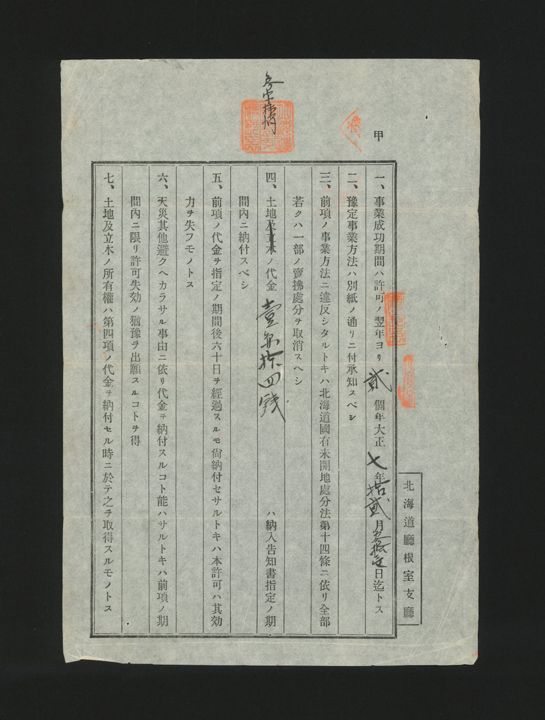 甲
北海道廳根室支廳
一、事業成功期間ハ許可ノ翌年ヨリ貳個年大正七年拾貳月 日迄トス
二、豫定事業方法ハ別紙ノ通リニ付承知スベシ
三、前項ノ事業方法ニ違反シタルトキハ北海道國有未開地處分法第十四條ニ依リ全部
若クハ一部ノ賣拂處分ヲ取消スヘシ
四、土地及立木ノ代金壹 拾四錢ハ納入告知書指定ノ期
間內ニ納付スベシ
五、前項ノ代金ヲ指定ノ期間後六十日ヲ經過スルモ尙納付セサルトキハ本許可ハ其効
力ヲ失フモノトス
六、天災其他避クヘカラサル事由ニ依リ代金ヲ納付スルコト能ハサルトキハ前項ノ期
間內ニ限リ許可失効ノ猶豫ヲ出願スルコトヲ得
七、土地及立木ノ所有權ハ第四項ノ代金ヲ納付セル時ニ於テ之ヲ取得スルモノトス